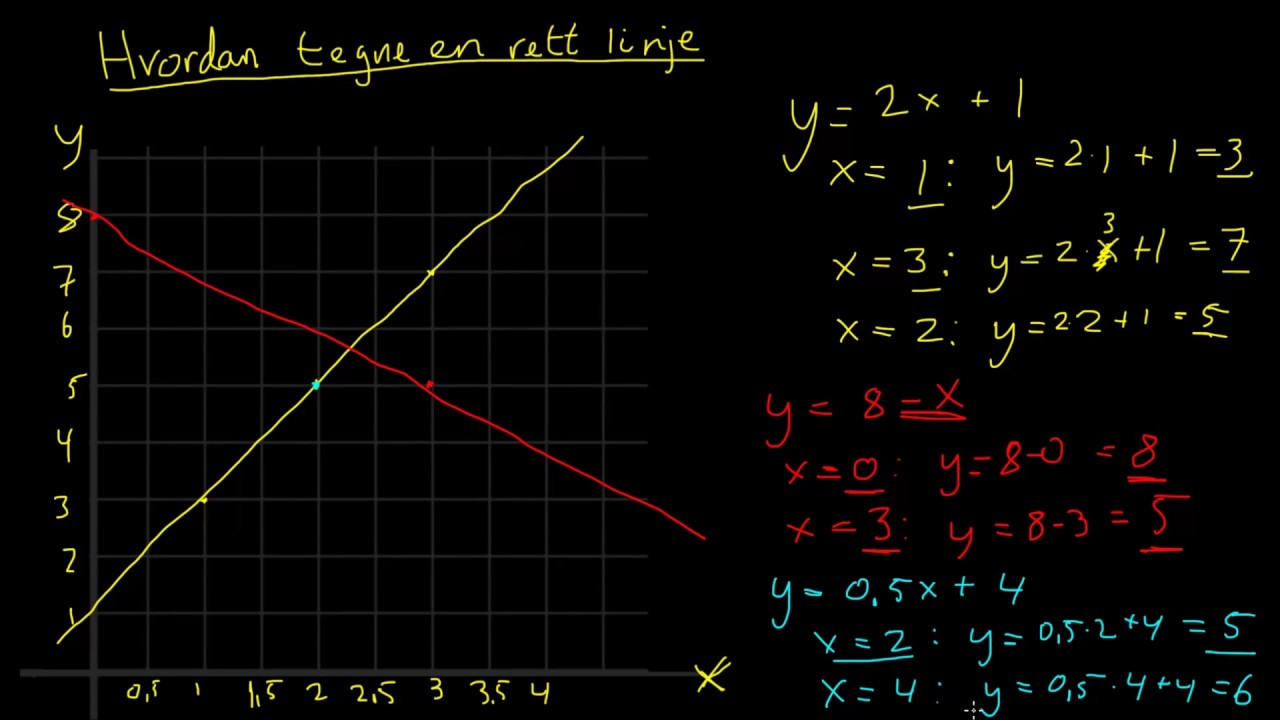 Hvordan tegne en rett linje
y
8
7
6
5
4
3
2
1
0,5 1 1,5 2 2,5 3 3.5 4
x
y = 2x + 1
x = 1: y = 2·1 + 1 = 3
x = 3: y = 2·3 + 1 = 7
x = 2: y = 2·2 + 1 = 5
y = 8 - x
x = 0: y = 8-0 = 8
x = 3: y = 8-3 = 5
y = 0,5x + 4
x = 2: y = 0,5·2+4 = 5
x = 4: y = 0,5·4+4 = 6